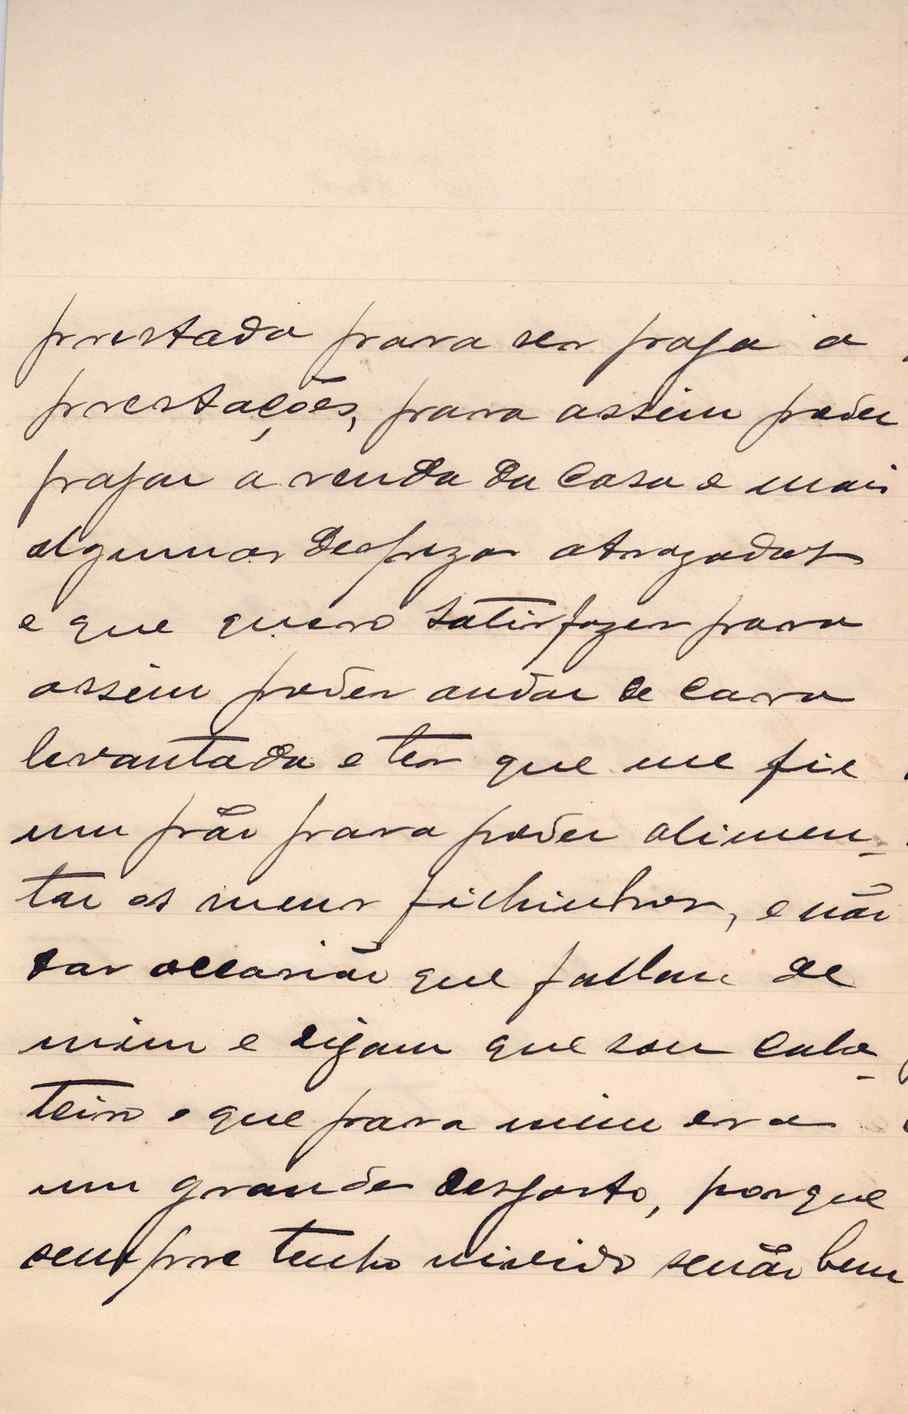 prestada para ser paga a
prestações, para assim poder
pagar a renda da casa e mais
algumas despezas atrazadas
e que quero satisfazer para
assim poder andar de cara
levantada e ter que me fie
um pão para poder alimen-
tar os meus filhinhos, e não
dar occasião que fallem de
mim e digam que sou calo-
teiro o que para mim era
um grande desgosto, porque
sempre tenho vivido senão bem